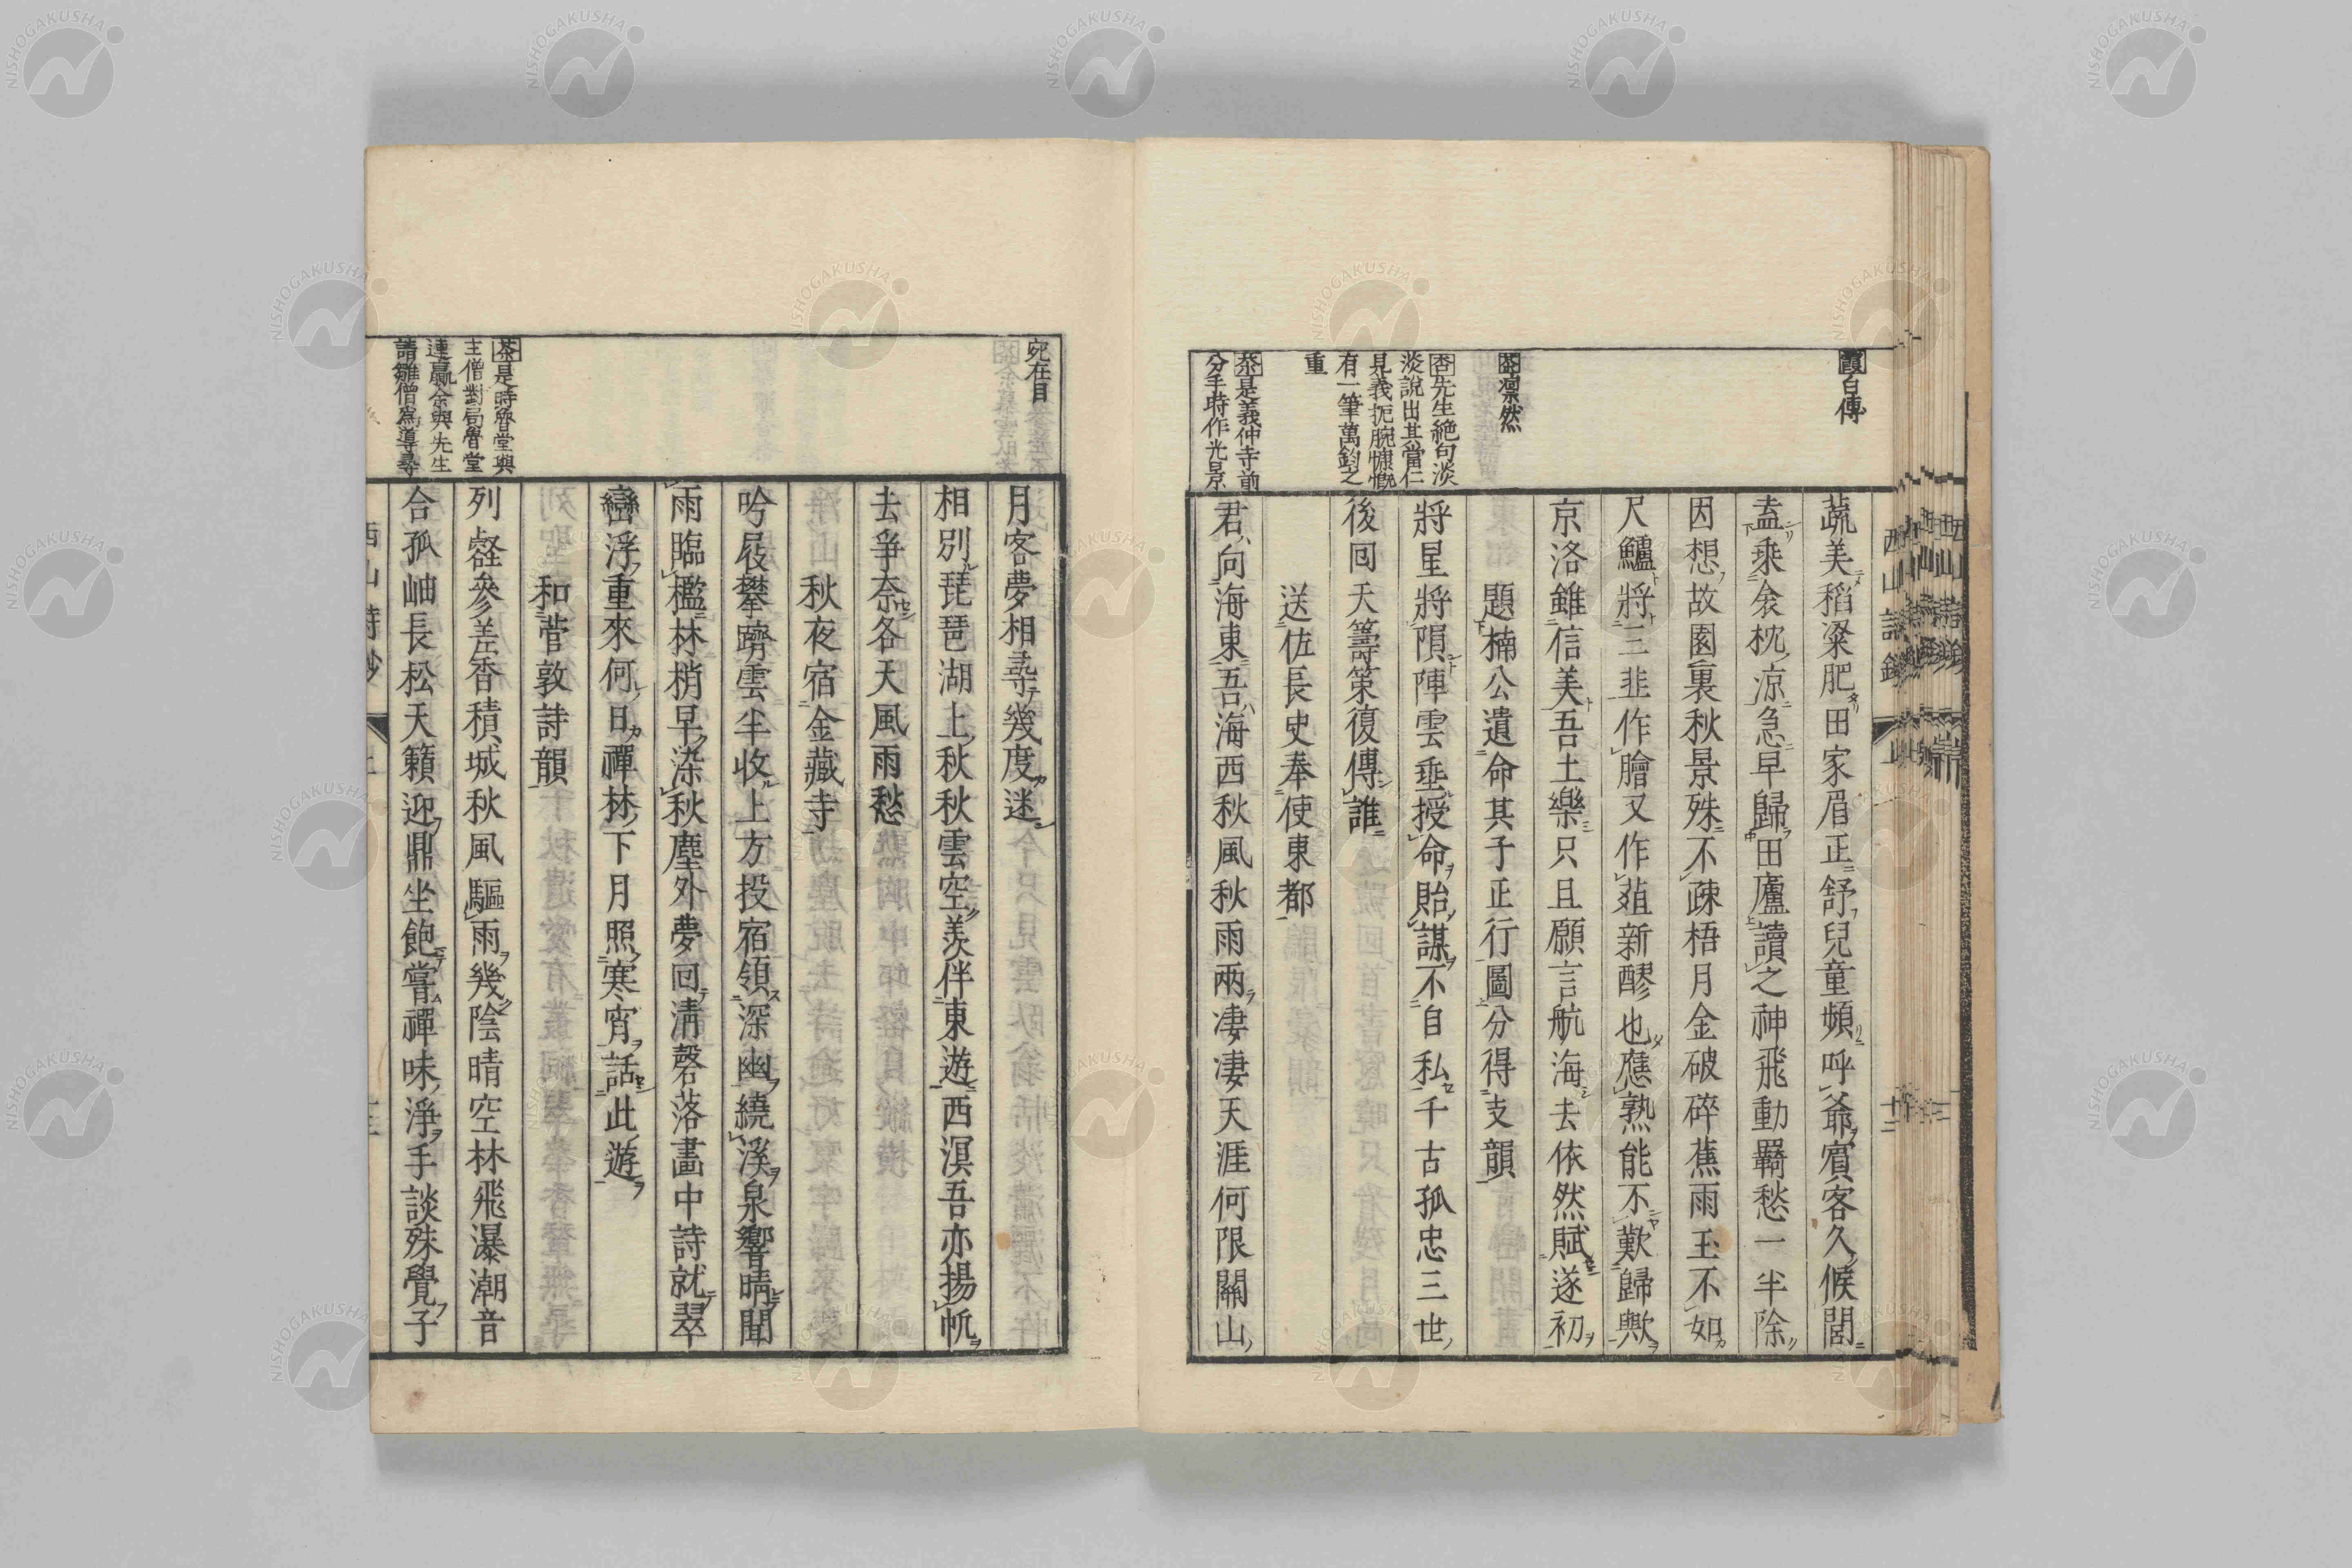 霞白傳
茶凛然
杏先生絶句淡
淡説出其當仁
見義扼腕慷慨
有一筆萬鈞之
重
茶是義仲寺前
分手時作光景
蔬美稻粱肥田家眉正舒兒童頻呼爺賓客久候閭
盍乘衾枕涼急早歸田廬讀之神飛動羇愁一半除
因想故園裏秋景殊不疎梧月金破碎蕉雨玉不如
尺鱸將三韭作膾又作葅新醪也應熟能不歎歸歟
京洛雖信美吾土樂只且願言航海去依然賦遂初
題楠公遺命其子正行圖分得支韻
將星將隕陣雲垂授命貽謀不自私千古孤忠三世
後回天籌策復傳誰
送佐長史奉使東都
君向海東吾海西秋風秋雨兩凄凄天涯何限關山
西山詩鈔
上
十二
宛在目
茶是時魯堂與
主僧對局魯堂
連贏余與先生
請雛僧爲導尋
月客夢相尋幾度迷
相別琵琶湖上秋秋雲空羨伴東遊西溟吾亦揚帆
去爭奈各天風雨愁
秋夜宿金藏寺
吟屐攀躋雲半收上方投宿領深幽繞溪泉響晴聞
雨臨檻林梢早染秋塵外夢回清磬落畵中詩就翠
巒浮重來何日禪林下月照寒宵話此遊
和菅敦詩韻
列壑參差香積城秋風驅雨幾陰晴空林飛瀑潮音
合孤岫長松天籟迎鼎坐飽嘗禪味淨手談殊覺子
NISHOGAKUSHA